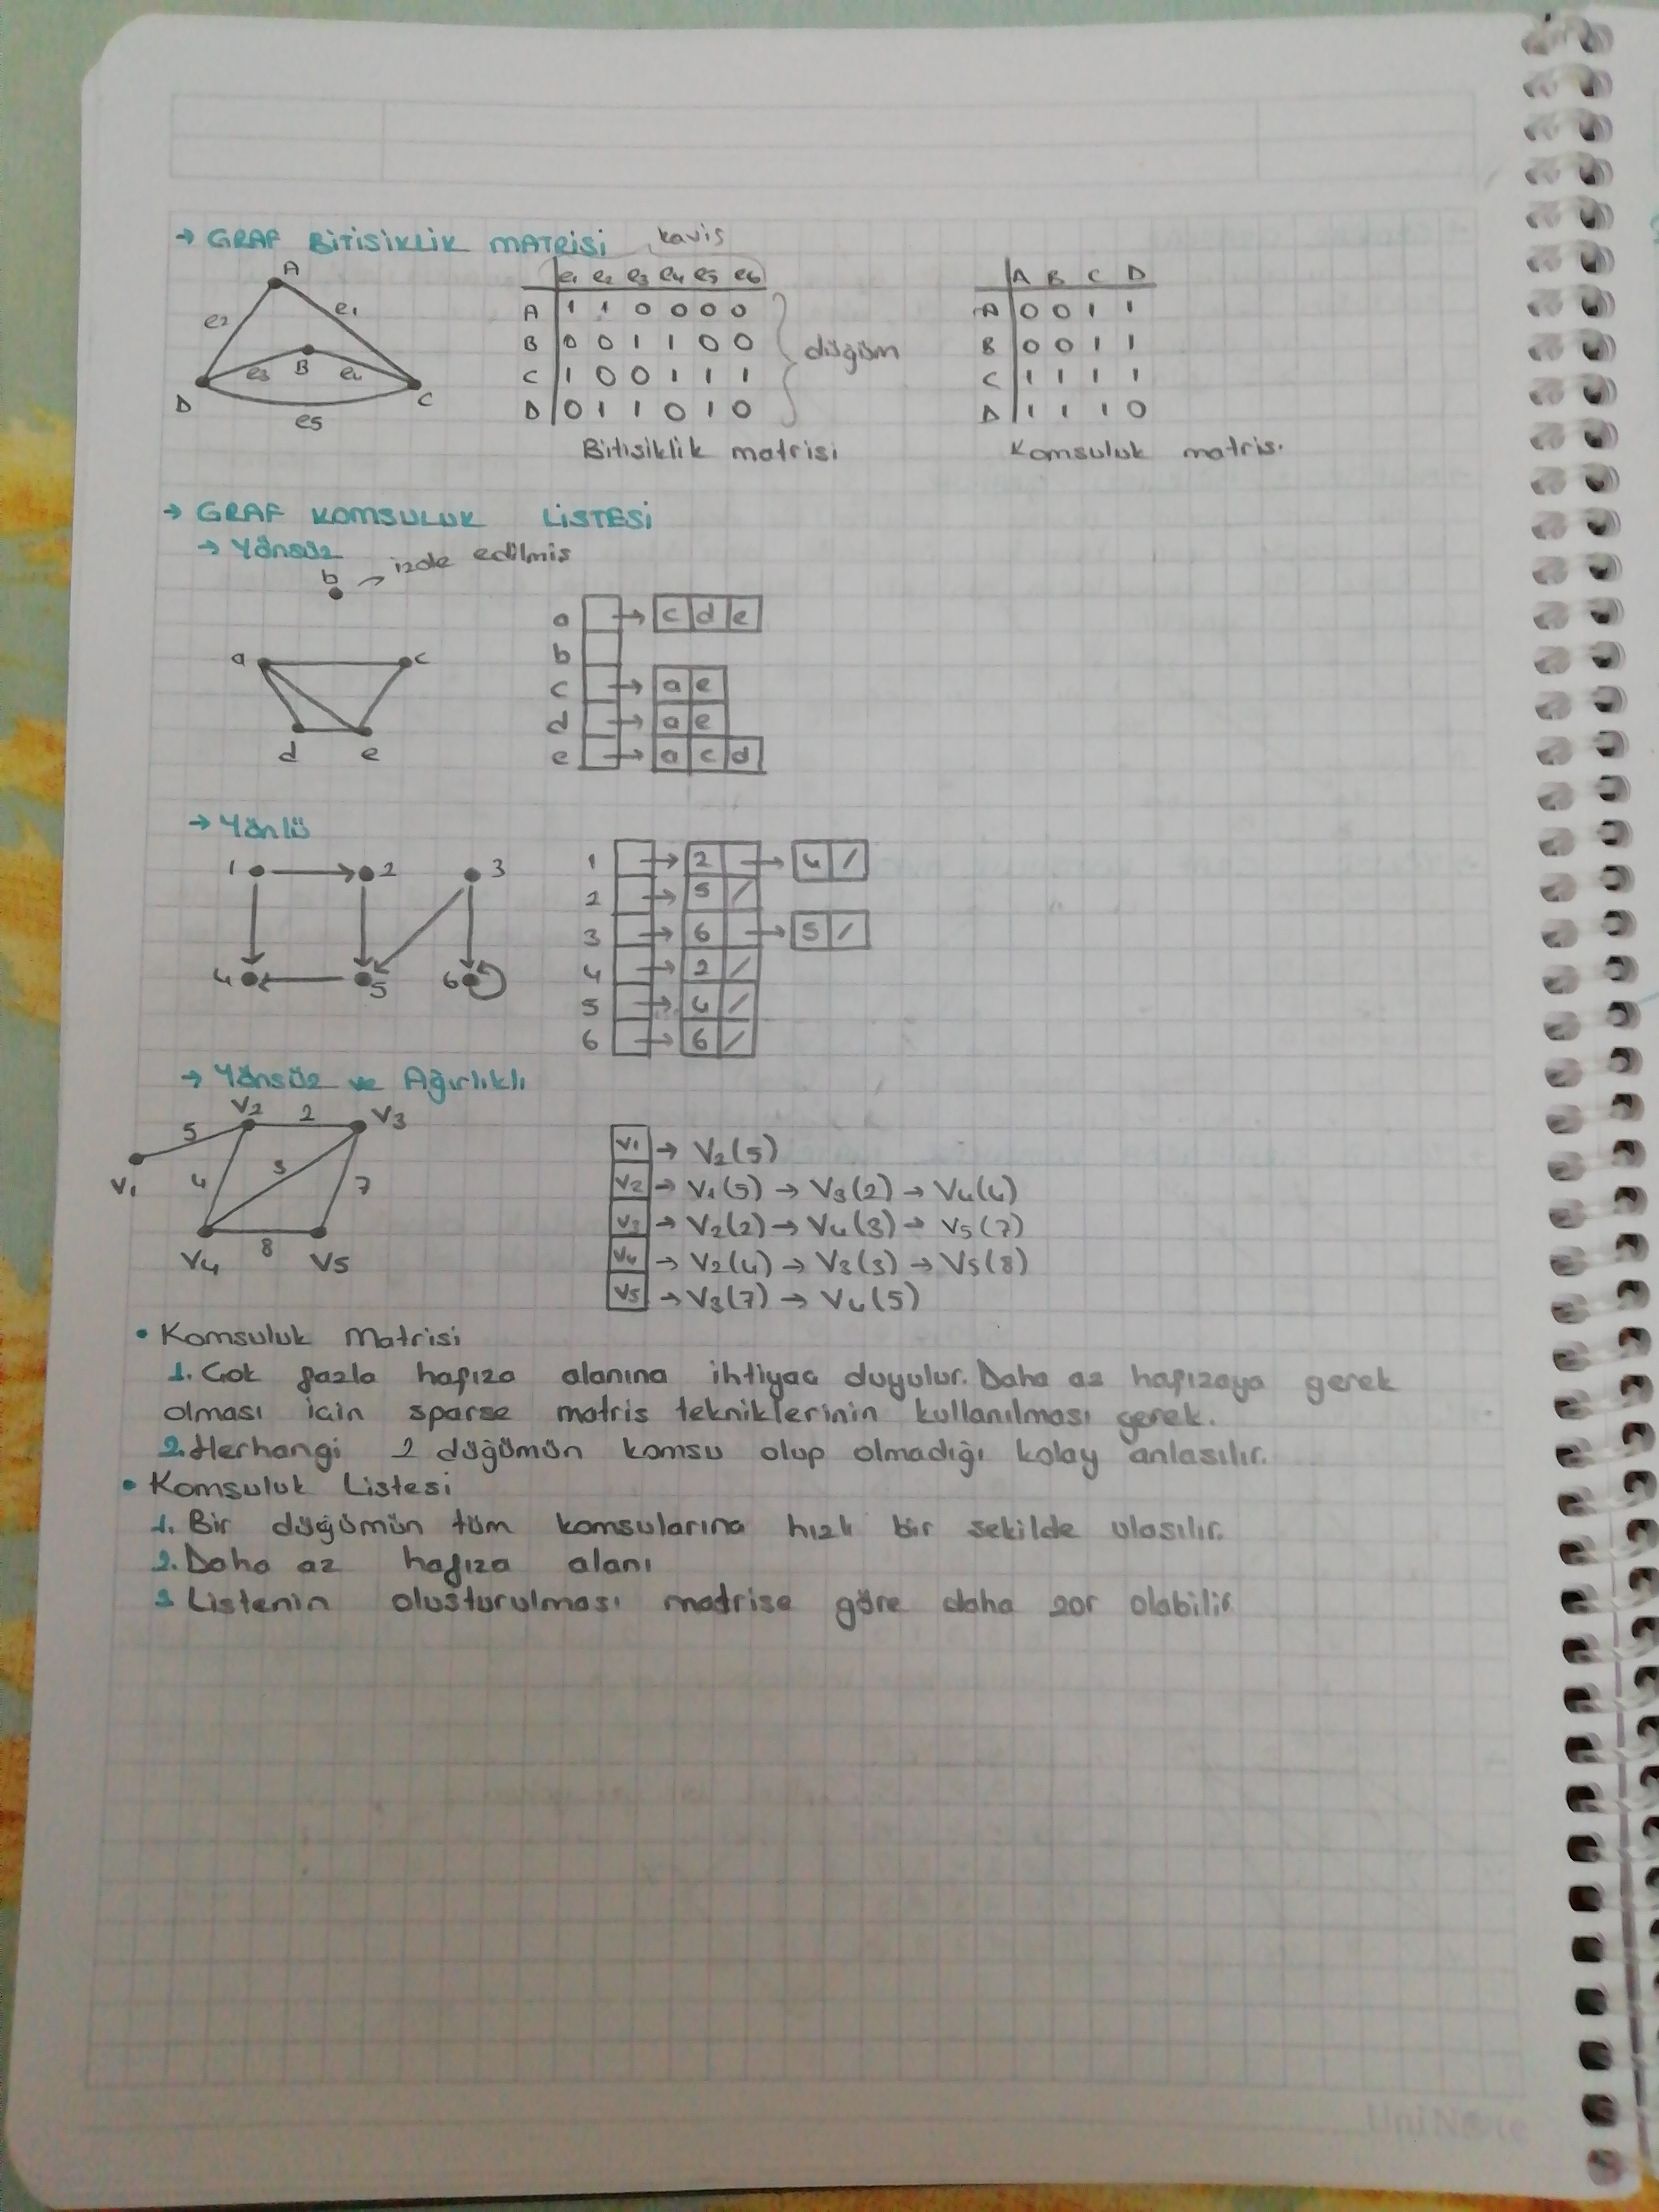 → GRAF BİTİSİKLİK MATRİSİ kavis
A
e2 e1
e3 B e4
D C
e5
e1 e2 e3 e4 e5 e6
A 1 1 0 0 0 0
B 0 0 1 1 0 0
C 1 0 0 1 1 1
D 0 1 1 0 1 0
düğüm
Bitisiklik matrisi
A B C D
A 0 0 1 1
B 0 0 1 1
C 1 1 1 1
D 1 1 1 0
Komsuluk matris.
→ GRAF KOMSULUK LİSTESİ
→ Yönsüz
b → izole edilmis
a c
d e
a → c d e
b
c → a e
d → a e
e → a c d
→ Yönlü
1 2 3
4 5 6
1 → 2 → 4 /
2 → 5 /
3 → 6 → 5 /
4 → 2 /
5 → 4 /
6 → 6 /
→ Yönsüz ve Ağırlıklı
V2 2 V3
5
V1 4 3 7
8
V4 V5
V1 → V2(5)
V2 → V1(5) → V3(2) → V4(4)
V3 → V2(2) → V4(3) → V5(7)
V4 → V2(4) → V3(3) → V5(8)
V5 → V3(7) → V4(5)
• Komsuluk Matrisi
1. Cok fazla hafıza alanına ihtiyac duyulur. Daha az hafızaya gerek
olması icin sparse matris tekniklerinin kullanılması gerek.
2. Herhangi 2 düğümün komsu olup olmadığı kolay anlasılır.
• Komsuluk Listesi
1. Bir düğümün tüm komsularına hızlı bir sekilde ulasılır.
2. Daha az hafıza alanı
3 Listenin olusturulması matrise göre daha zor olabilir
UniNote